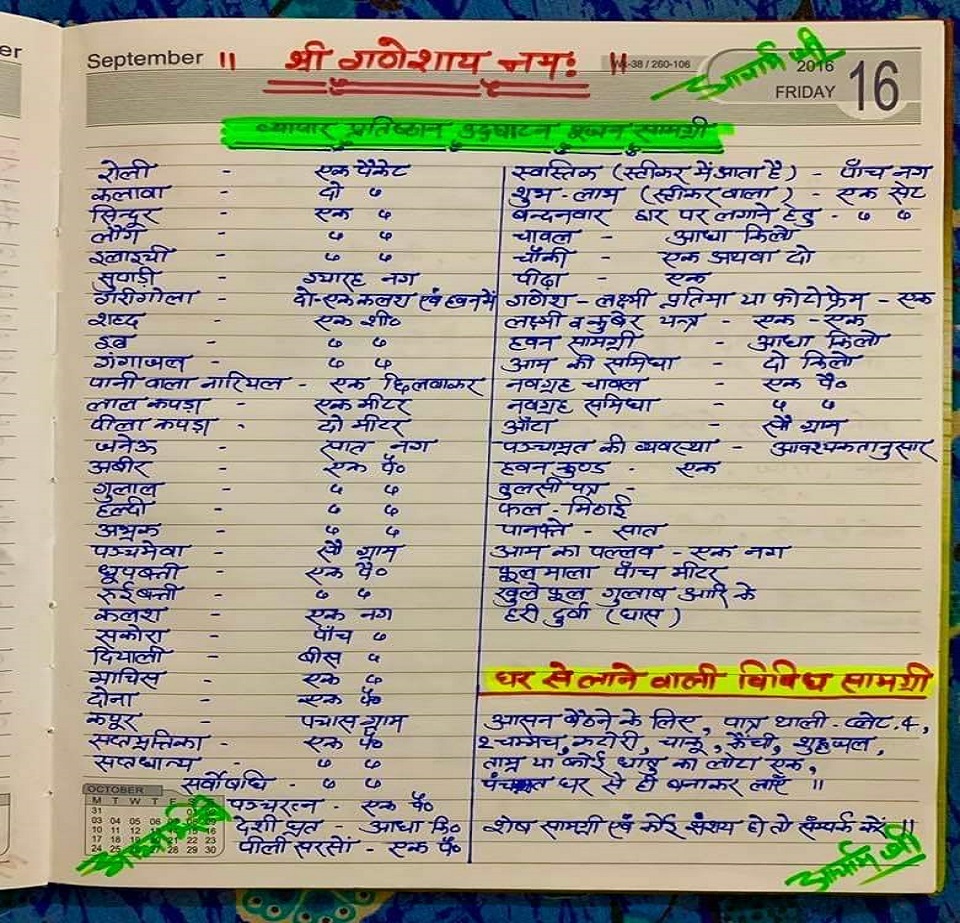 er
September
॥ श्री गणेशाय नमः ॥
WK-38 / 260-106
2016
FRIDAY
16
आचार्य श्री
व्यापार प्रतिष्ठान उद्घाटन पूजन सामग्री
रोली - एक पैकेट
कलावा - दो ७
सिन्दूर - एक ७
लौंग - ७ ७
इलाइची - ७ ७
सुपाड़ी - ग्यारह नग
गरीगोला - दो-एक कलश एवं हवन में
शहद - एक शी०
इत्र - ७ ७
गंगाजल - ७ ७
पानी वाला नारियल - एक छिलवाकर
लाल कपड़ा - एक मीटर
पीला कपड़ा - दो मीटर
जनेऊ - सात नग
अबीर - एक पै०
गुलाल - ७ ७
हल्दी - ७ ७
अभ्रक - ७ ७
पञ्चमेवा - सौ ग्राम
धूपबत्ती - एक पै०
रुईबत्ती - ७ ७
कलश - एक नग
सकोरा - पाँच ७
दियाली - बीस ७
माचिस - एक ७
दोना - एक पै०
कपूर - पचास ग्राम
सप्तमृत्तिका - एक पै०
सप्तधान्य - ७ ७
सर्वोषधि - ७ ७
पञ्चरत्न - एक पै०
देशी घृत - आधा कि०
पीली सरसो - एक पै०
स्वास्तिक (स्टीकर में आता है) - पाँच नग
शुभ-लाभ (स्टीकर वाला) - एक सेट
बन्दनवार द्वार पर लगाने हेतु - ७ ७
चावल - आधा किलो
चौकी - एक अथवा दो
पीढ़ा - एक
गणेश-लक्ष्मी प्रतिमा या फोटोफ्रेम - एक
लक्ष्मी व कुबेर यन्त्र - एक-एक
हवन सामग्री - आधा किलो
आम की समिधा - दो किलो
नवग्रह चावल - एक पै०
नवग्रह समिधा - ७ ७
आँटा - सौ ग्राम
पञ्चामृत की व्यवस्था - आवश्यकतानुसार
हवन कुण्ड - एक
तुलसी पत्र -
फल-मिठाई
पानपत्ते - सात
आम का पल्लव - एक नग
फूलमाला पाँच मीटर
खुले फूल गुलाब आदि के
हरी दुर्वा (घास)
घर से लाने वाली विविध सामग्री
आसन बैठने के लिए, पात्र थाली-प्लेट.4,
२ चम्मच, कटोरी, चाकू, कैंची, शुद्धजल,
ताम्र या कोई धातु का लोटा एक,
पंचामृत घर से ही बनाकर लाएँ ॥
शेष सामग्री एवं कोई संशय हो तो सम्पर्क करें ॥
आचार्य श्री
OCTOBER
M T W T F S S
आचार्य श्री